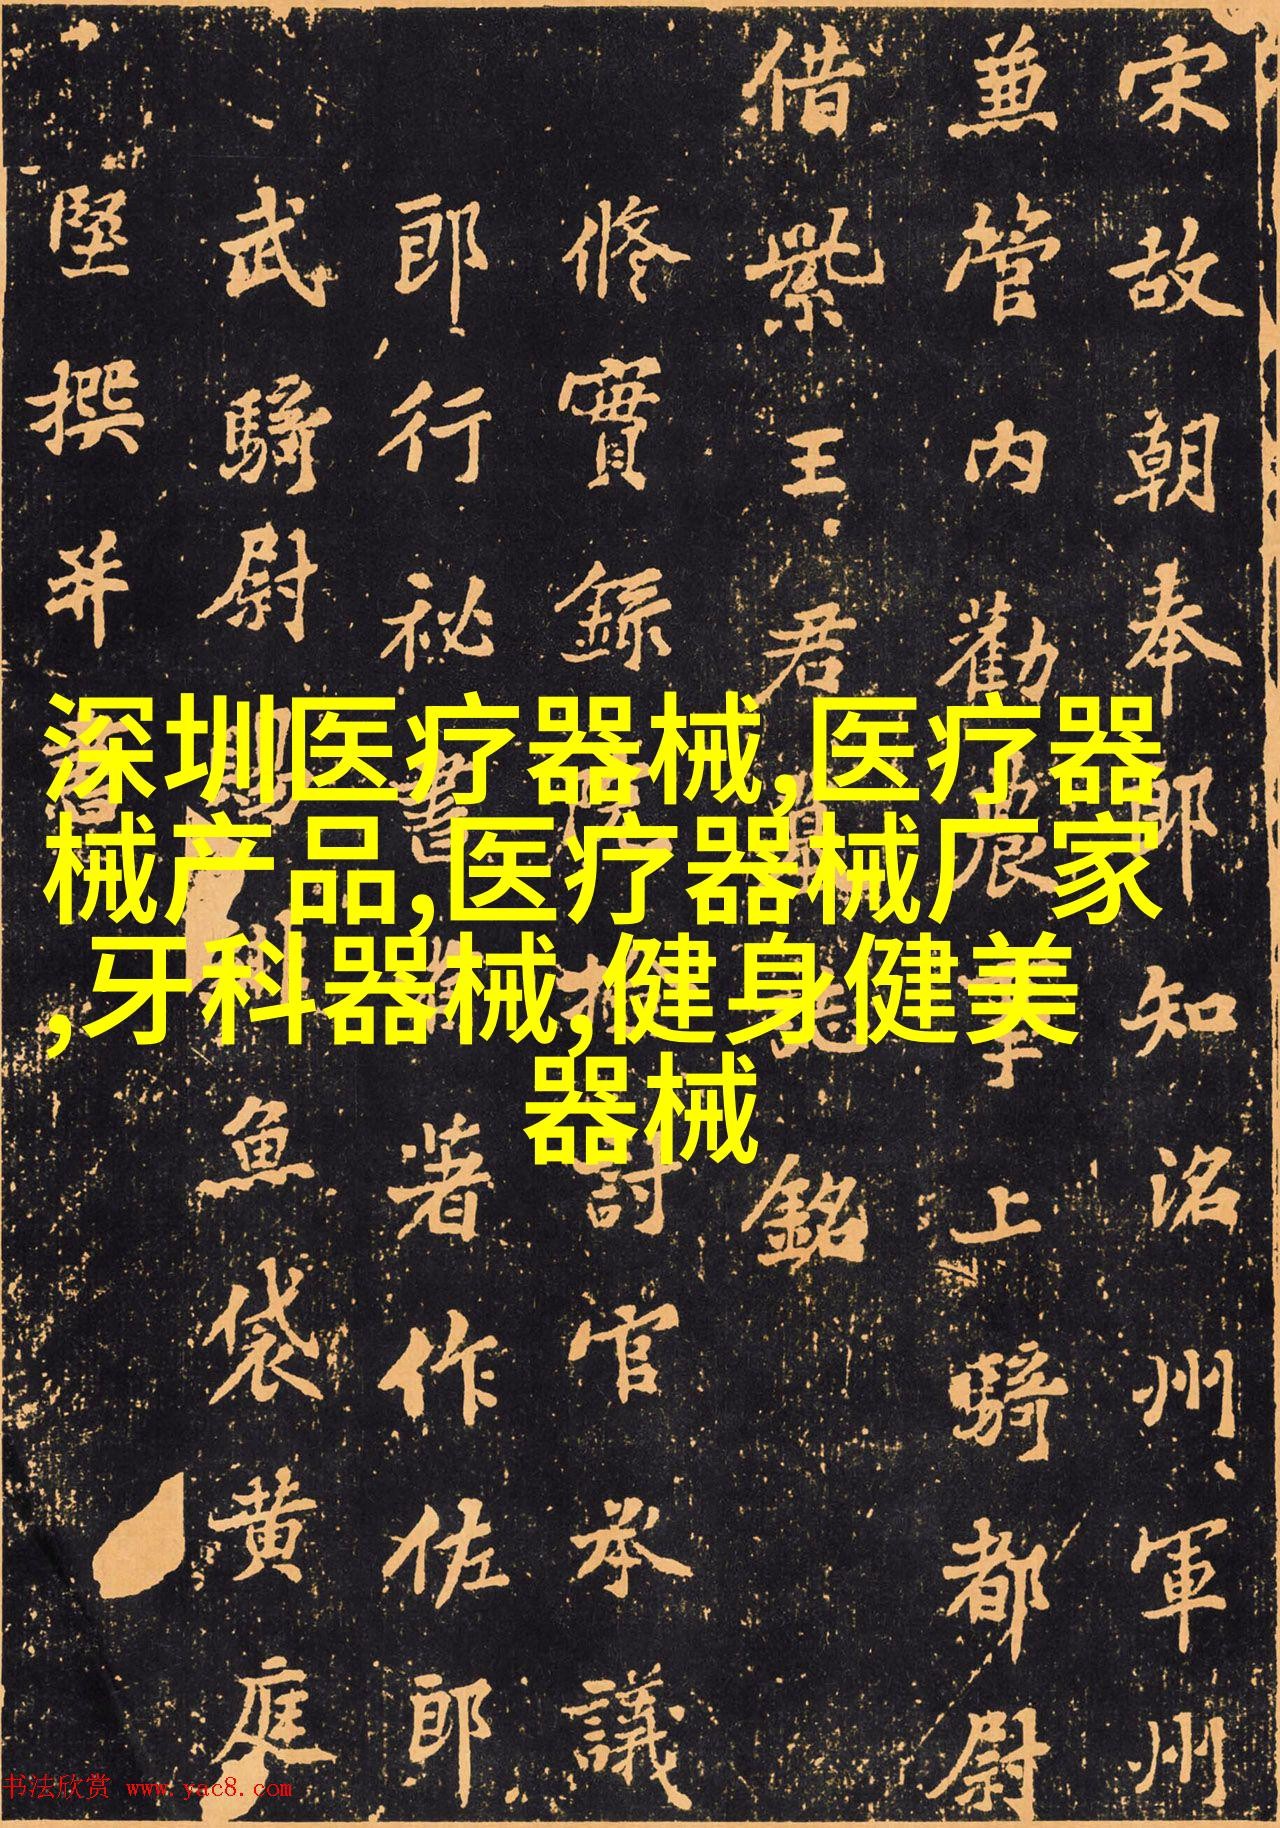 宋故朝奉郎知洺州軍州
兼管内勸農事上騎都尉
借紫王君墓誌銘
修實錄院檢討官承議
郎行秘書省著作佐郎
武騎尉賜緋魚袋黃庭
堅撰并書
深圳医疗器械,医疗器
械产品,医疗器械厂家
,牙科器械,健身健美
器械
书法欣赏 www.yac8.com